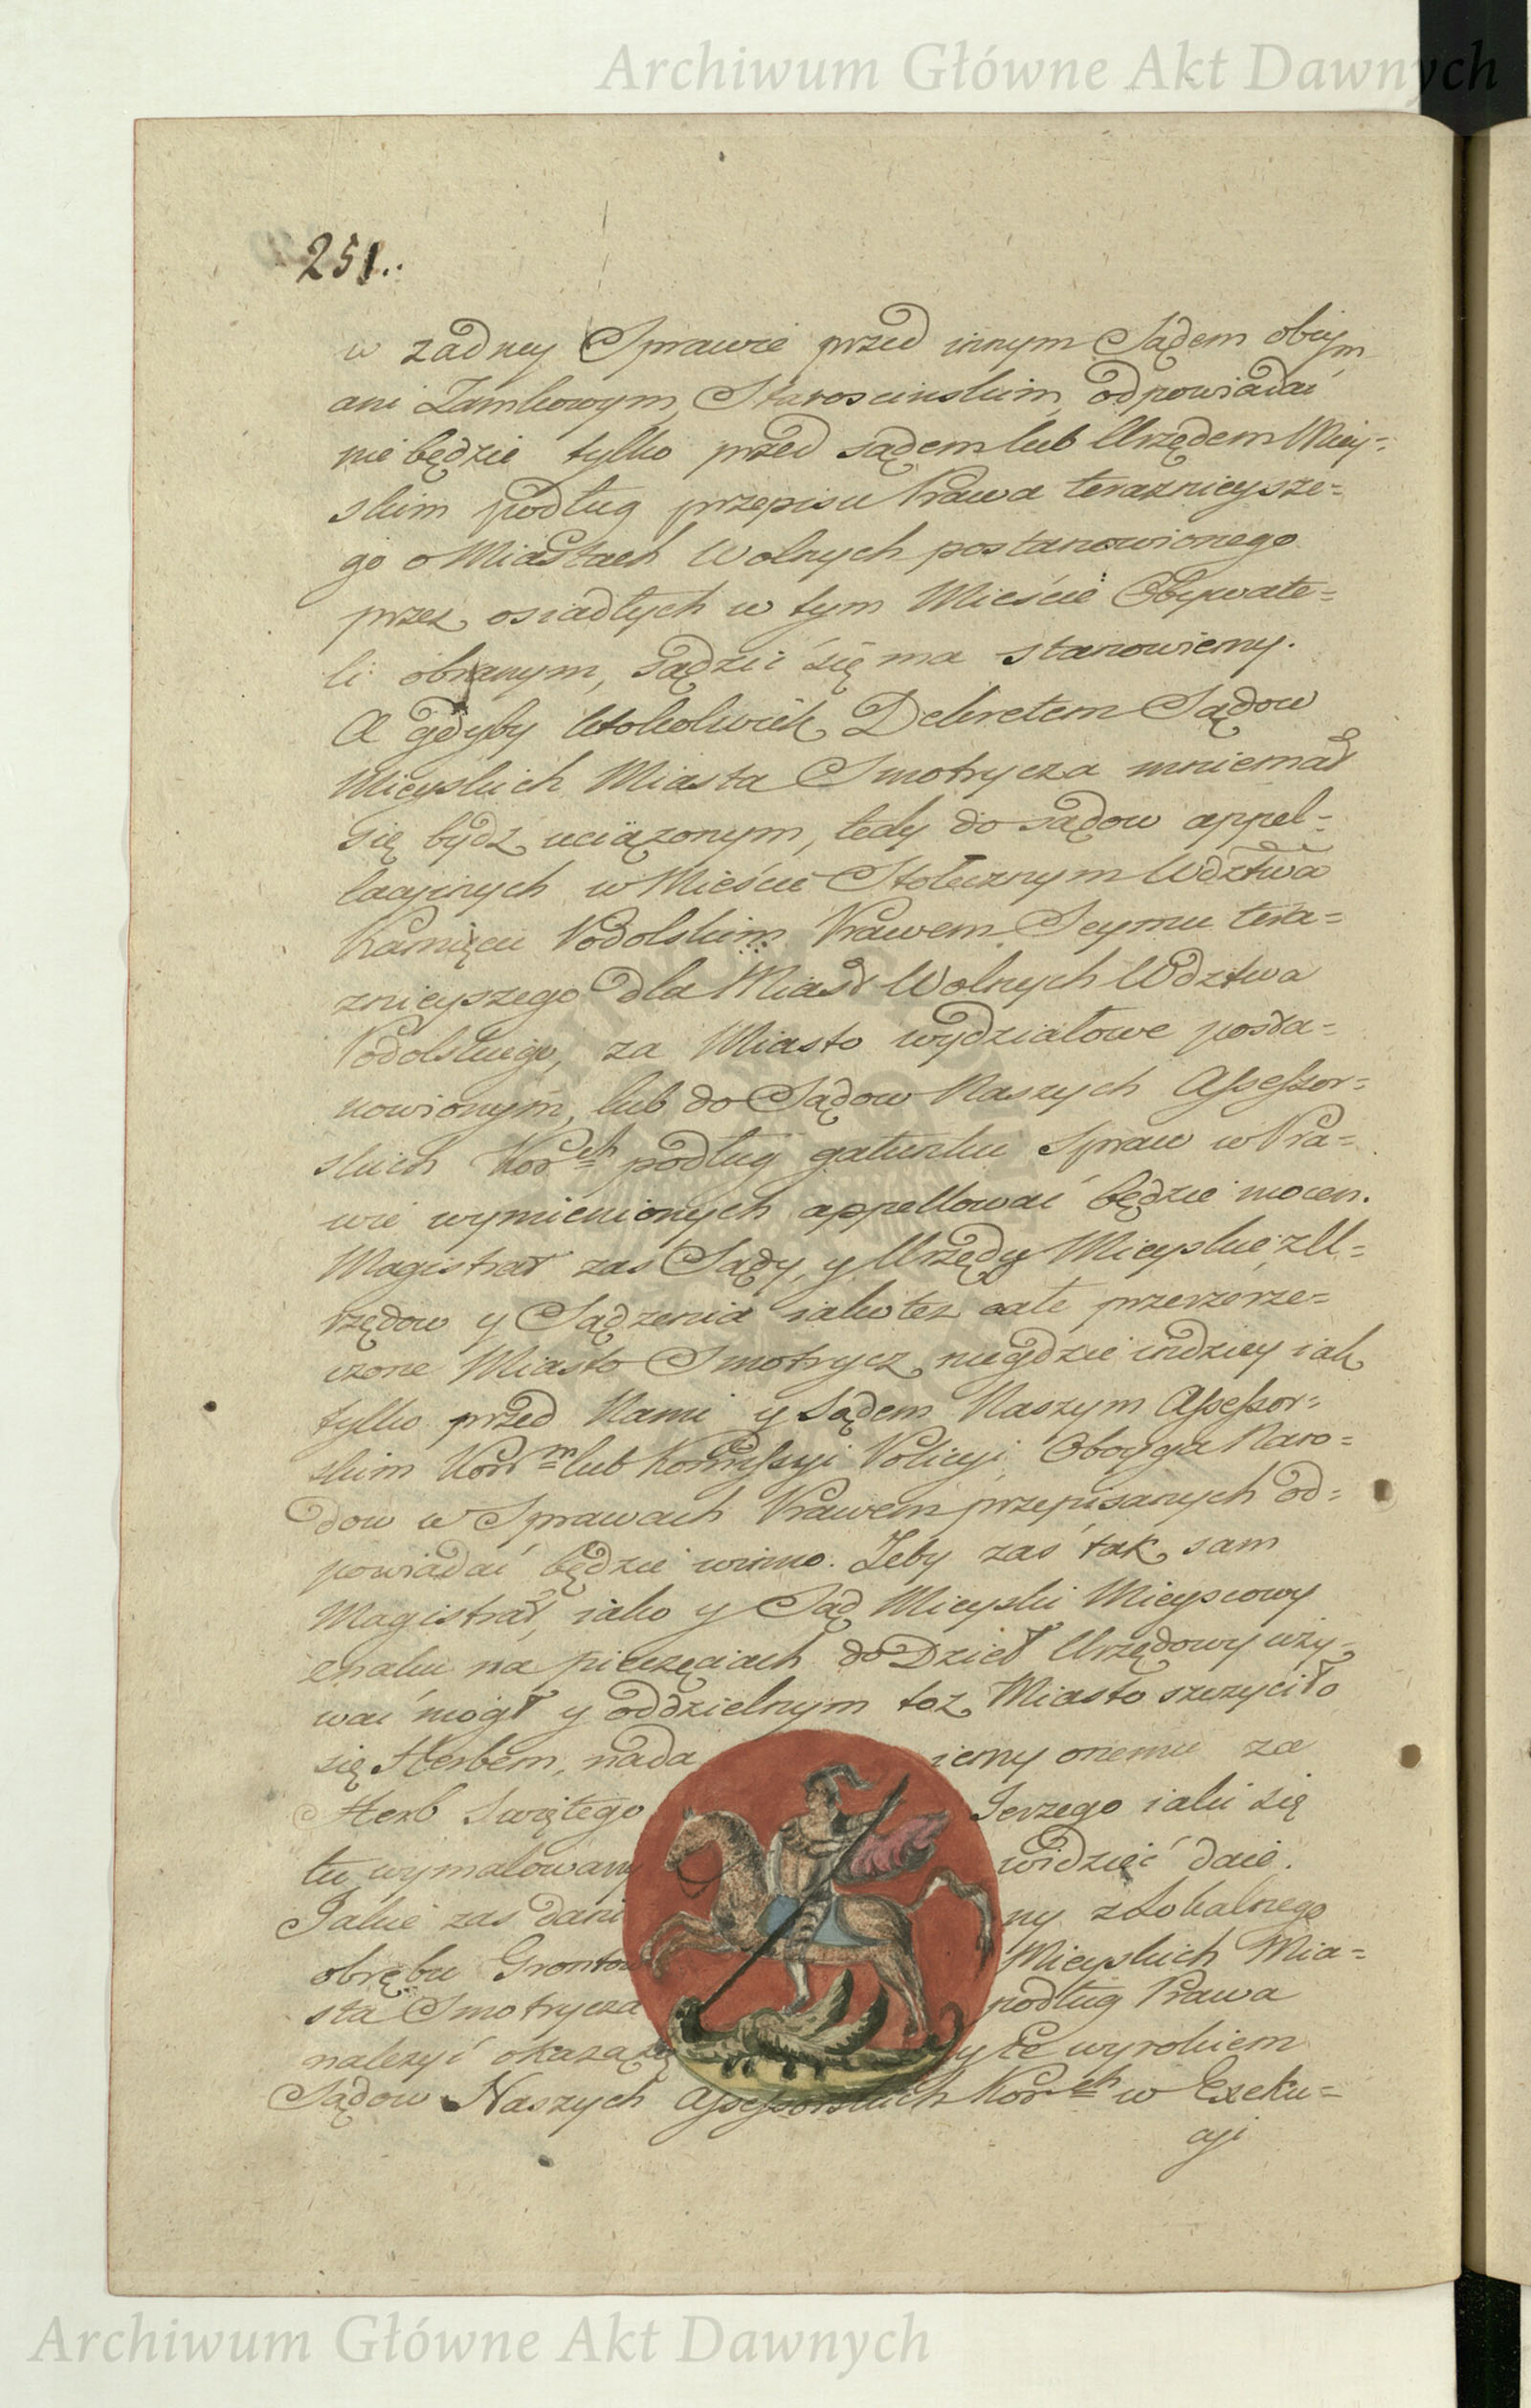 Archiwum Główne Akt Dawnych
251.
w zadney Sprawie przed innym Sądem obcym
ani Zamkowym, Staroscinskim, odpowiadać
nie będzie tylko przed sądem lub Urzędem Miey=
skim podług przepisu Prawa teraznieysze=
go o Miastach Wolnych postanowionego
przez osiadłych w tym Mieście Obywate=
li obranym, sądzić się ma stanowiemy.
A gdyby ktokolwiek Dekretem Sądow
Mieyskich Miasta Smotrycza mniemał
się bydz uciązonym, tedy do sądow appel=
lacyinych w Mieście Stołecznym Wdztwa
Kamięcu Podolskim Prawem Seymu tera=
znieyszego dla Miast Wolnych Wdztwa
Podolskiego, za Miasto wydziałowe posta=
nowionym, lub do Sądow Naszych Assessor=
skich Korch podług gatunku spraw w Pra=
wie wymienionych appellować będzie mocen.
Magistrat zas Sądy, y Urzędy Mieyskie, z U=
rzędow y Sądzenia iako tez całe przerzerze=
czone Miasto Smotrycz niegdzie indziey iak
tylko przed Nami y Sądem Naszym Assessor=
skim Korm lub Kommissyi Policyi Oboyga Naro=
dow w Sprawach Prawem przepisanych od=
powiadać będzie winno. Zeby zaś tak sam
Magistrat, iako y Sąd Mieyski Mieyscowy
znaku na pieczęciach do Dzieł Urzędowy uzy=
wać mogł y oddzielnym toz Miasto szczyciło
się Herbem, nada iemy onemu za
Herb Swiętego Jerzego iaki się
tu wymalowany widzieć daie.
Jakie zas dani ny z Lokalnego
obrębu Grontow Mieyskich Mia=
sta Smotrycza podług Prawa
nalezyć okazą się y te wyrokiem
Sądow Naszych Assessorskich Korch w Exeku=
cyi
Archiwum Główne Akt Dawnych